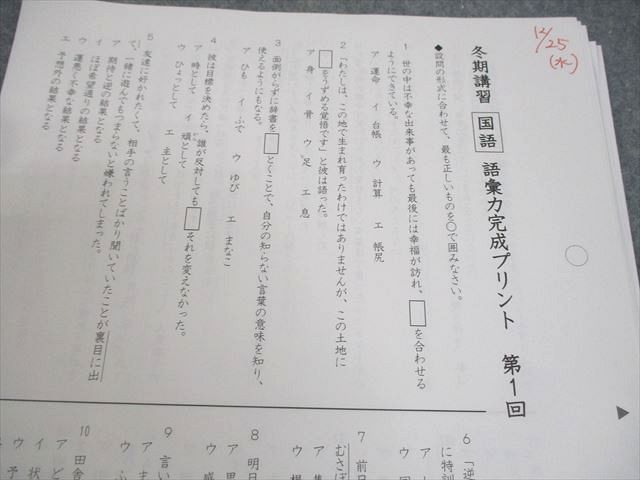 12/25
(水)
冬期講習 国語 語彙力完成プリント 第1回
◆設問の形式に合わせて、最も正しいものを○で囲みなさい。
1 世の中は不幸な出来事があっても最後には幸福が訪れ、□を合わせる
ようにできている。
ア 運命 イ 台帳 ウ 計算 エ 帳尻
2 「わたしは、この地で生まれ育ったわけではありませんが、この土地に
□をうずめる覚悟です」と彼は語った。
ア 身 イ 骨 ウ 足 エ 息
3 面倒がらずに辞書を□とくことで、自分の知らない言葉の意味を知り、
使えるようにもなる。
ア ひも イ ふで ウ ゆび エ まなこ
4 彼は目標を決めたら、誰が反対しても□それを変えなかった。
ア 時として イ 頑として
ウ ひょっとして エ 主として
5 友達に好かれたくて、相手の言うことばかり聞いていたことが裏目に出
て、「一緒に遊んでもつまらないと嫌われてしまった。
ア 期待と逆の結果となる
イ ほぼ希望通りの結果となる
ウ 運悪く不幸な結果となる
エ 予想外の結果となる
6 「逆
に特訓
ア
ウ
7 前日
むさぼ
ア 集
ウ 根
8 明日
ア 思
ウ 感
9 言い
ア ま
ウ ふ
10 田舎
ア ど
イ 状
ウ 予